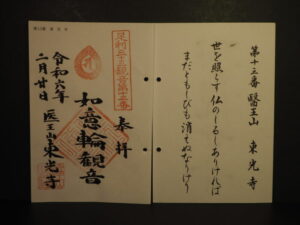 第十三番 醫王山 東光寺
世を照らす仏のしるしありければ
まだともしびも消えぬなりけり
足利三十三観音第十三番
奉拝
如意輪観音
医王山東光寺
令和六年
二月廿日